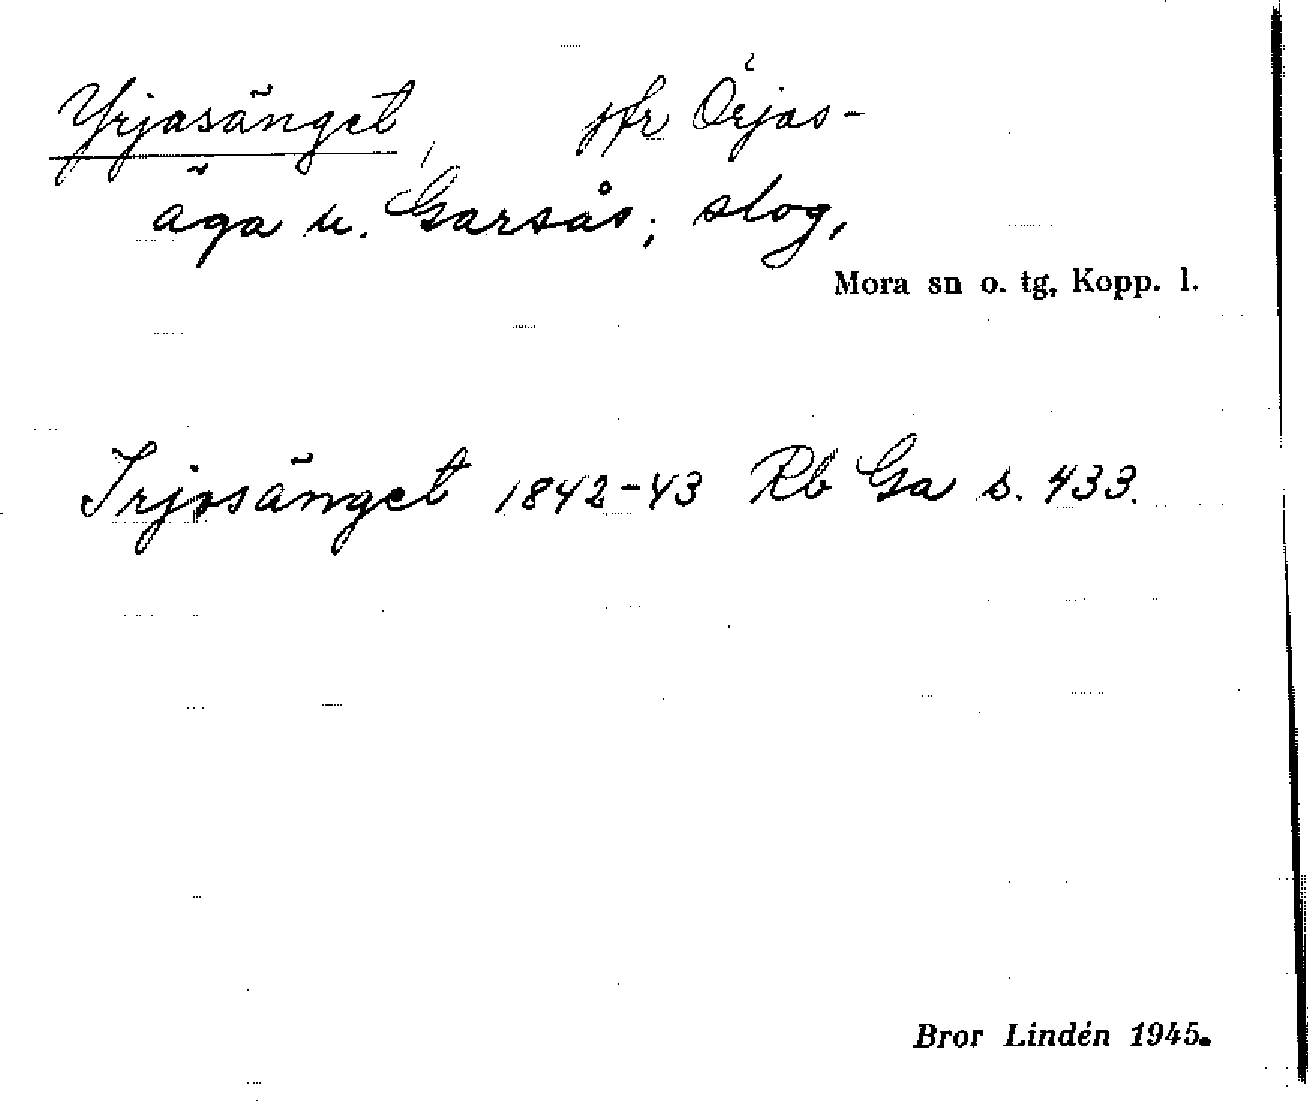 Yrjasänget, jfr Örjas-
äga u. Garsås; slog,
Mora sn o. tg, Kopp. l.
Irjosänget 1842-43 Rb Ga s. 433.
Bror Lindén 1945.